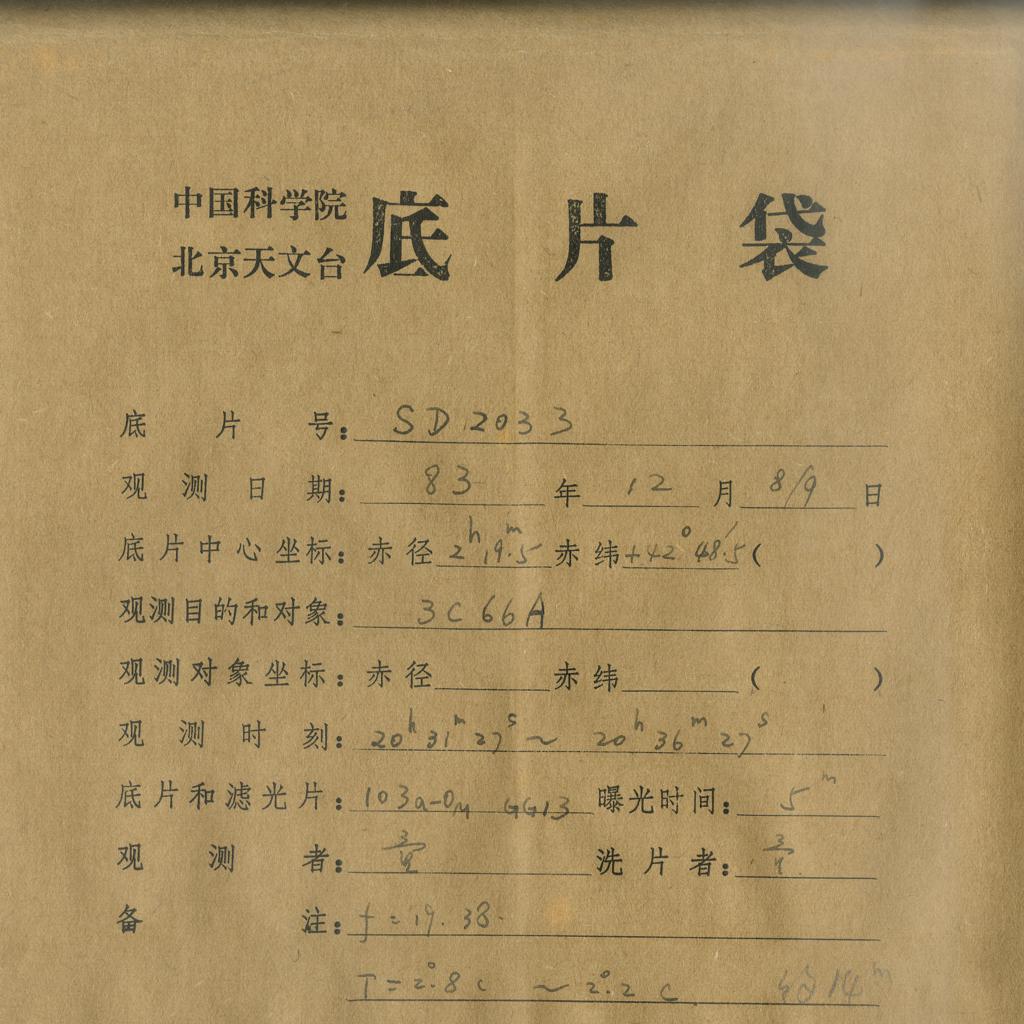 中国科学院
北京天文台 底片袋
底片号: SD 2033
观测日期: 83 年 12 月 8/9 日
底片中心坐标: 赤径 2h 19m.5 赤纬 +42° 48'.5 ( )
观测目的和对象: 3C 66A
观测对象坐标: 赤径 赤纬 ( )
观测时刻: 20h 31m 27s ~ 20h 36m 27s
底片和滤光片: 103a-O GG13 曝光时间: 5m
观测者: 洗片者:
备注: f = 19.38
T = 2°.8 c ~ 2°.2 c 约14m